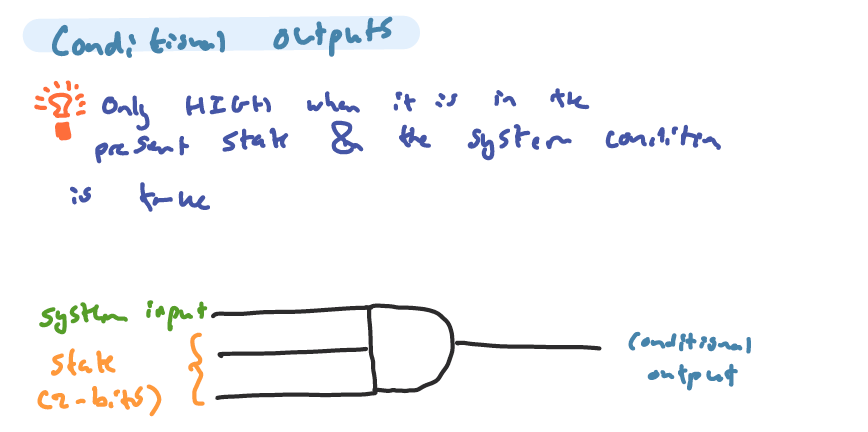 Conditional outputs
Only HIGH when it is in the
present state & the system condition
is true
system input
state
(2-bits)
conditional
output